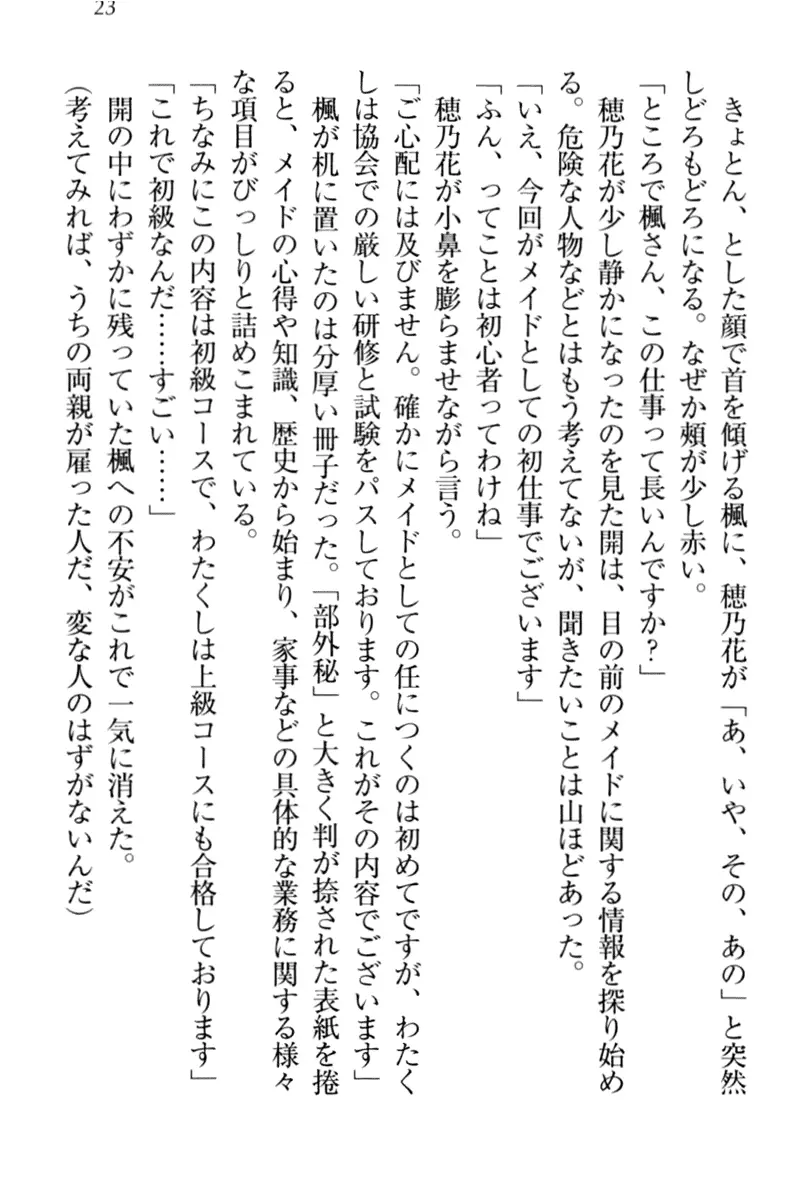 23
きょとん、とした顔で首を傾げる楓に、穂乃花が「あ、いや、その、あの」と突然
しどろもどろになる。なぜか頰が少し赤い。
「ところで楓さん、この仕事って長いんですか？」
穂乃花が少し静かになったのを見た開は、目の前のメイドに関する情報を探り始め
る。危険な人物などとはもう考えてないが、聞きたいことは山ほどあった。
「いえ、今回がメイドとしての初仕事でございます」
「ふん、ってことは初心者ってわけね」
穂乃花が小鼻を膨らませながら言う。
「ご心配には及びません。確かにメイドとしての任につくのは初めてですが、わたく
しは協会での厳しい研修と試験をパスしております。これがその内容でございます」
楓が机に置いたのは分厚い冊子だった。「部外秘」と大きく判が捺された表紙を捲
ると、メイドの心得や知識、歴史から始まり、家事などの具体的な業務に関する様々
な項目がびっしりと詰めこまれている。
「ちなみにこの内容は初級コースで、わたくしは上級コースにも合格しております」
「これで初級なんだ……すごい……」
開の中にわずかに残っていた楓への不安がこれで一気に消えた。
（考えてみれば、うちの両親が雇った人だ、変な人のはずがないんだ）